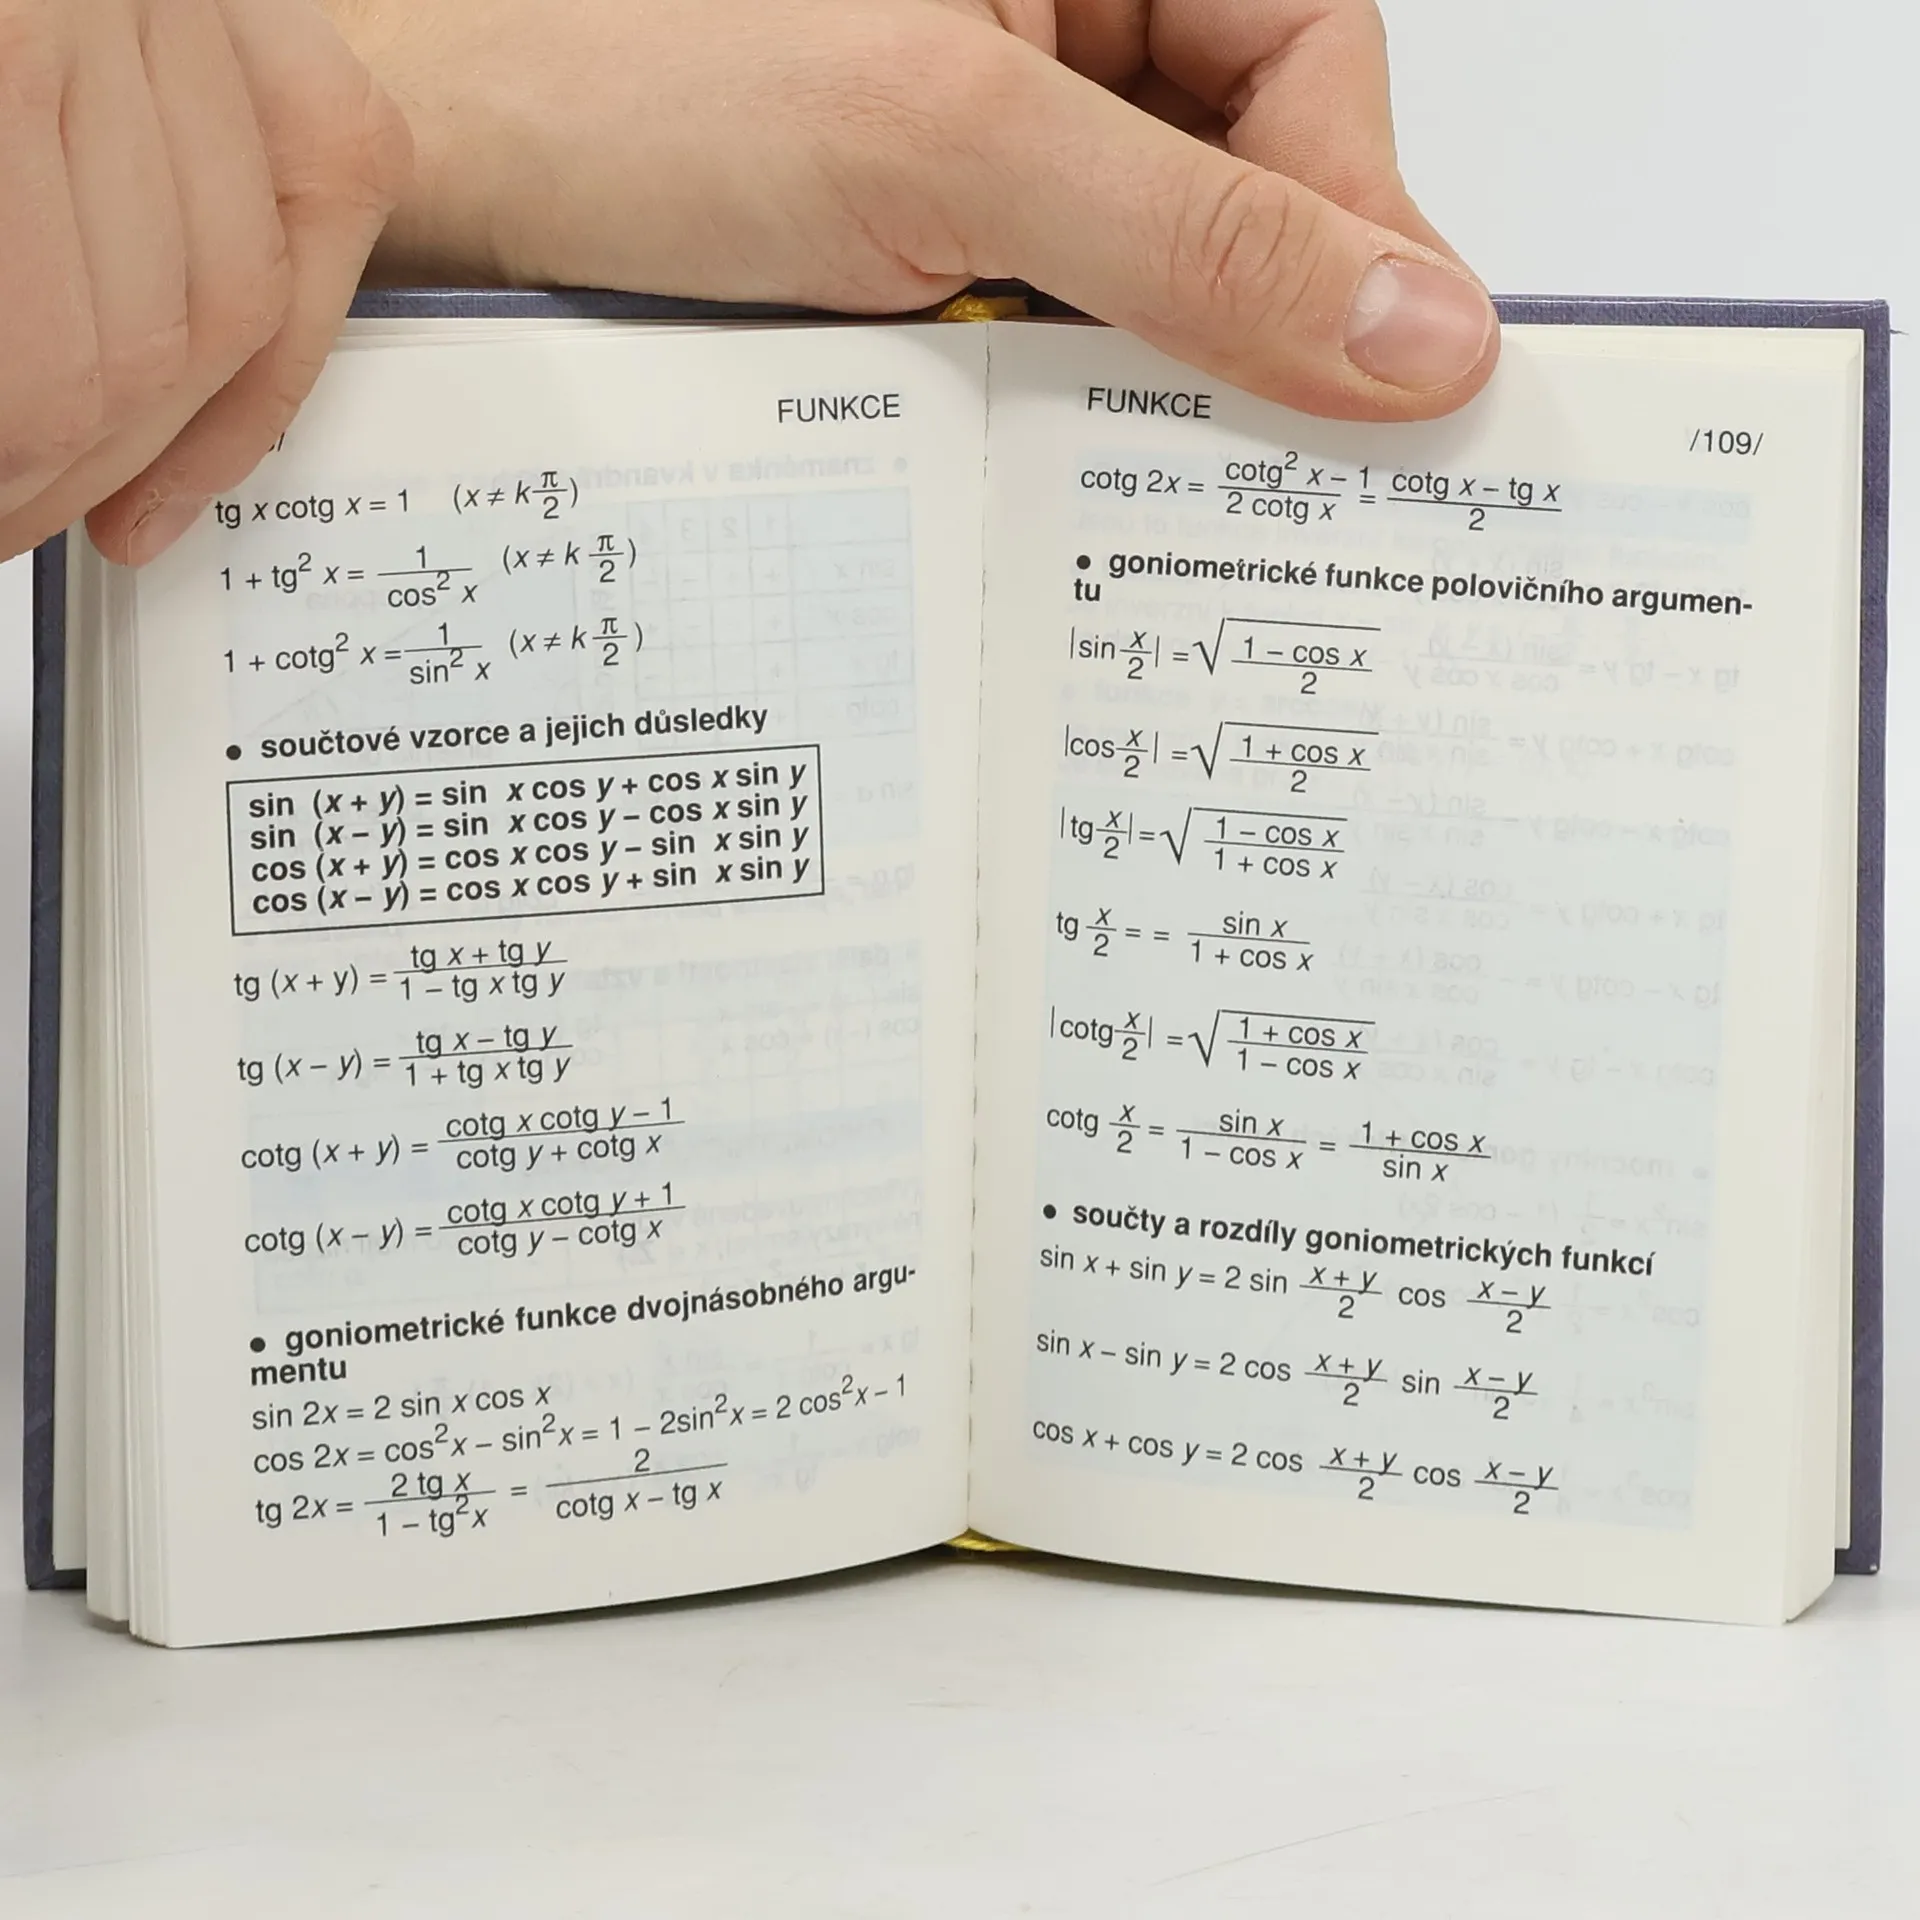 FUNKCE
tg x cotg x = 1 (x ≠ k π/2)
1 + tg² x = 1/cos² x (x ≠ k π/2)
1 + cotg² x = 1/sin² x (x ≠ k π/2)
• součtové vzorce a jejich důsledky
sin (x + y) = sin x cos y + cos x sin y
sin (x – y) = sin x cos y – cos x sin y
cos (x + y) = cos x cos y – sin x sin y
cos (x – y) = cos x cos y + sin x sin y
tg (x + y) = (tg x + tg y)/(1 – tg x tg y)
tg (x – y) = (tg x – tg y)/(1 + tg x tg y)
cotg (x + y) = (cotg x cotg y – 1)/(cotg y + cotg x)
cotg (x – y) = (cotg x cotg y + 1)/(cotg y – cotg x)
• goniometrické funkce dvojnásobného argu-
mentu
sin 2x = 2 sin x cos x
cos 2x = cos²x – sin²x = 1 – 2sin²x = 2 cos²x – 1
tg 2x = (2 tg x)/(1 – tg²x) = 2/(cotg x – tg x)
FUNKCE
/109/
cotg 2x = (cotg² x – 1)/(2 cotg x) = (cotg x – tg x)/2
• goniometrické funkce polovičního argumen-
tu
|sin x/2| = √((1 – cos x)/2)
|cos x/2| = √((1 + cos x)/2)
|tg x/2| = √((1 – cos x)/(1 + cos x))
tg x/2 = = sin x/(1 + cos x)
|cotg x/2| = √((1 + cos x)/(1 – cos x))
cotg x/2 = sin x/(1 – cos x) = (1 + cos x)/sin x
• součty a rozdíly goniometrických funkcí
sin x + sin y = 2 sin (x + y)/2 cos (x – y)/2
sin x – sin y = 2 cos (x + y)/2 sin (x – y)/2
cos x + cos y = 2 cos (x + y)/2 cos (x – y)/2